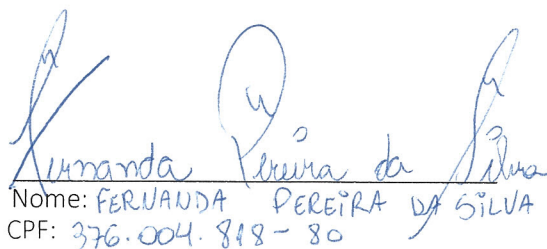 Fernanda Pereira da Silva
Nome: FERNANDA PEREIRA DA SILVA
CPF: 376.004.818-80